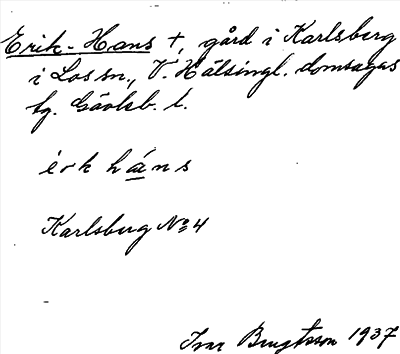 Erik-Hans +, gård i Karlsberg
i Los sn., V. Hälsingl. domsagas
tg. Gävleb. l.
èrk háns
Karlsberg No 4
Ivar Bengtsson 1937